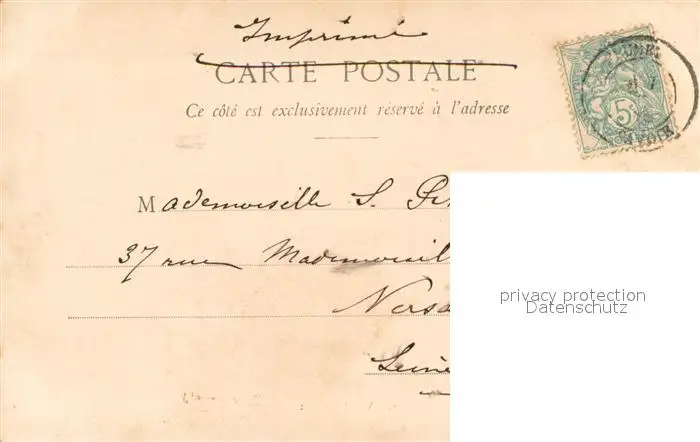 Imprimé
CARTE POSTALE
Ce côté est exclusivement réservé à l'adresse
Mademoiselle S.
37 rue Mademoisel
Versa
Seine
5c
privacy protection
Datenschutz